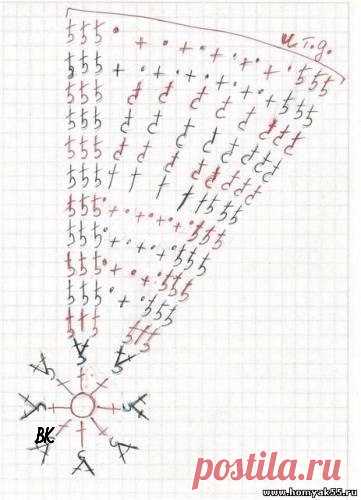 и т.д.
ВК
postila.ru
www.homyak55.ru